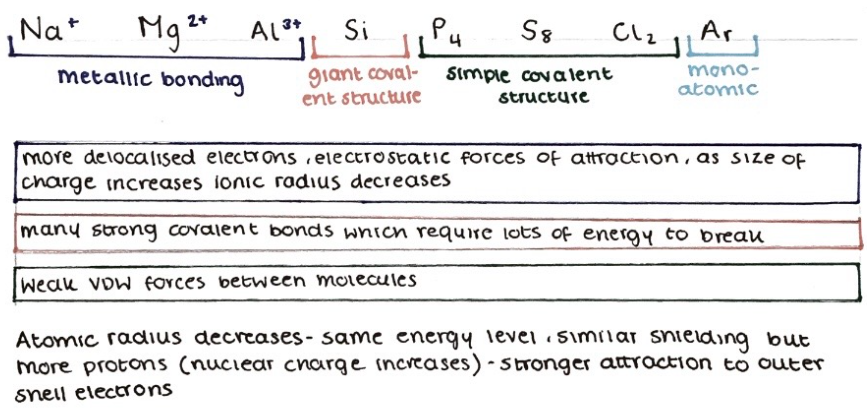 Na⁺ Mg²⁺ Al³⁺ Si P₄ S₈ Cl₂ Ar
metallic bonding
giant coval-
ent structure
simple covalent
structure
mono-
atomic
more delocalised electrons, electrostatic forces of attraction, as size of
charge increases ionic radius decreases
many strong covalent bonds which require lots of energy to break
weak VDW forces between molecules
Atomic radius decreases - same energy level, similar shielding but
more protons (nuclear charge increases) - stronger attraction to outer
shell electrons